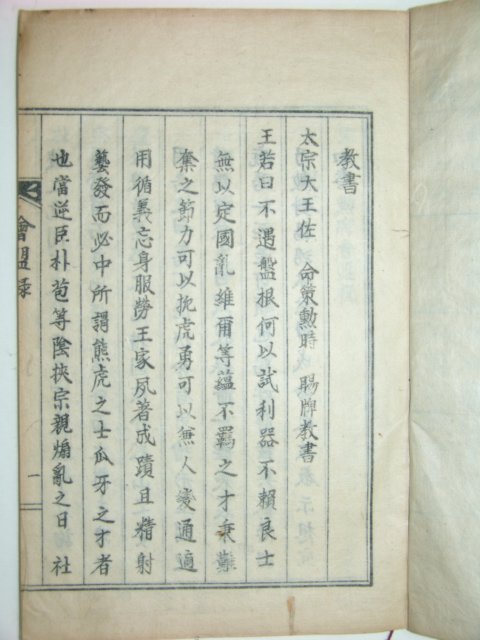 教書
太宗大王佐 命策勳時 賜牌教書
王若曰不遇盤根何以試利器不賴良士
無以定國亂維爾等蘊不羈之才秉難
奪之節力可以扼虎勇可以無人變通適
用循義忘身服勞王家夙著成蹟且精射
藝發而必中所謂熊虎之士瓜牙之才者
也當逆臣朴苞等陰挾宗親煽亂之日 社
會盟錄
一